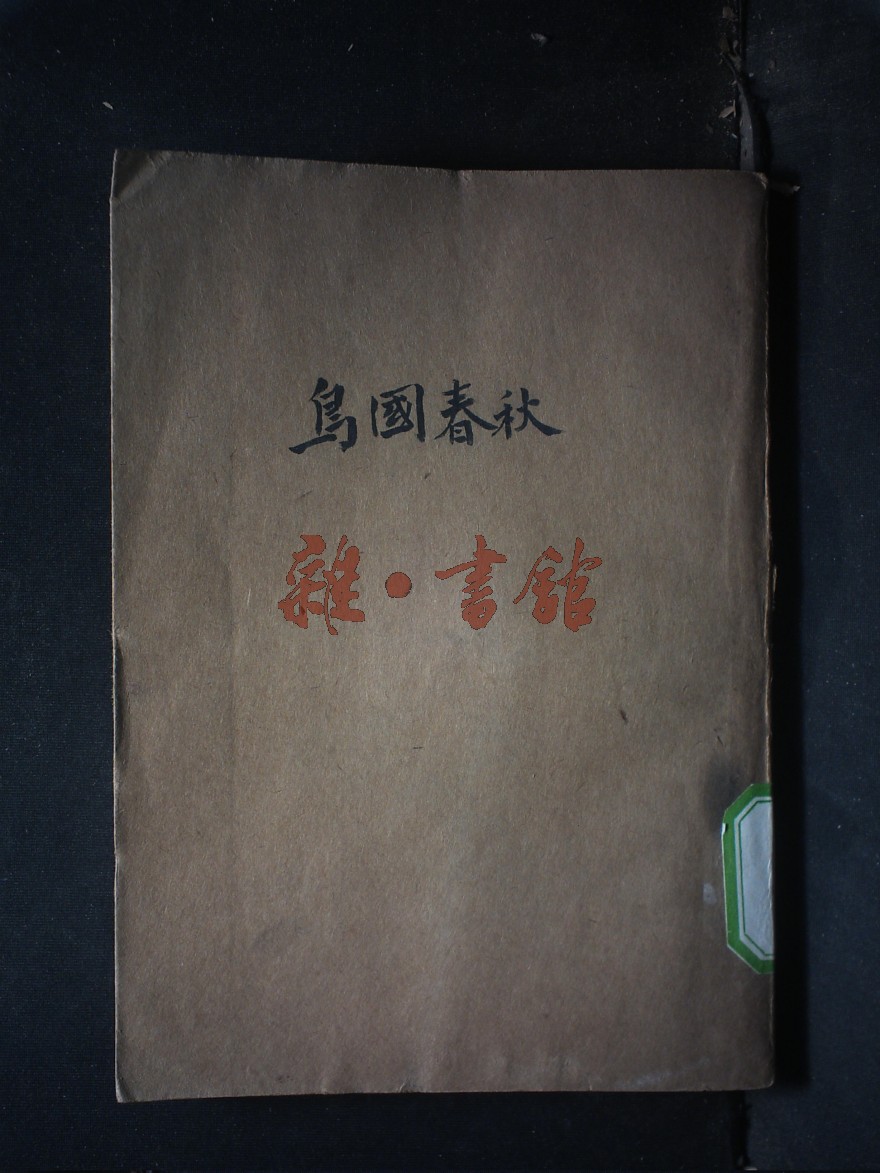 鳥國春秋
雜·書館